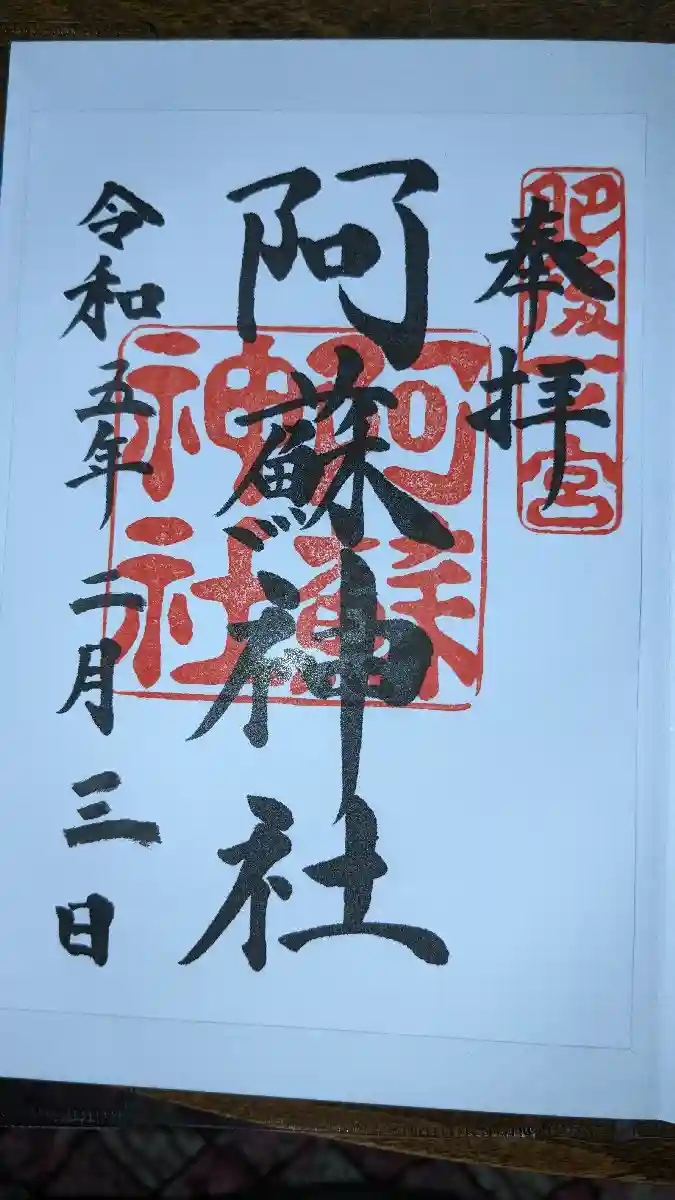 奉拝
肥後一宮
阿蘇神社
阿蘇神社
令和五年二月三日